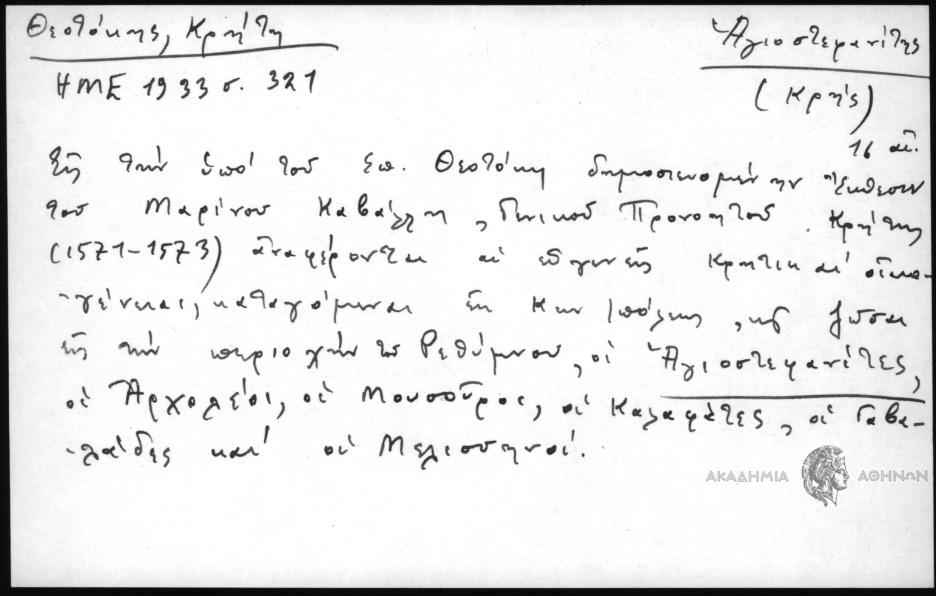 Θεοτόκης, Κρήτη
Ἁγιοστεφανίτης
ΗΜΕ 1933 σ. 321
(Κρής)
16 αἰ.
Εἰς τὴν ὑπό τοῦ Σπ. Θεοτόκη δημοσιευομένην Ἔκθεσιν
τοῦ Μαρίνου Καβάλλη, Γενικοῦ Προνοητοῦ Κρήτης
(1571-1573) ἀναφέρονται αἱ εὐγενεῖς Κρητικαί οἰκο-
-γένειαι, καταγόμεναι ἐκ Κων/πόλεως, καὶ ζῶσαι
εἰς τὴν περιοχήν τοῦ Ρεθύμνου, οἱ Ἁγιοστεφανίτες,
οἱ Ἀρχολέοι, οἱ Μουσοῦροι, οἱ Καλαφάτες, οἱ Γαβα-
-λάδες καί οἱ Μελισσηνοί.
ΑΚΑΔΗΜΙΑ ΑΘΗΝΩΝ